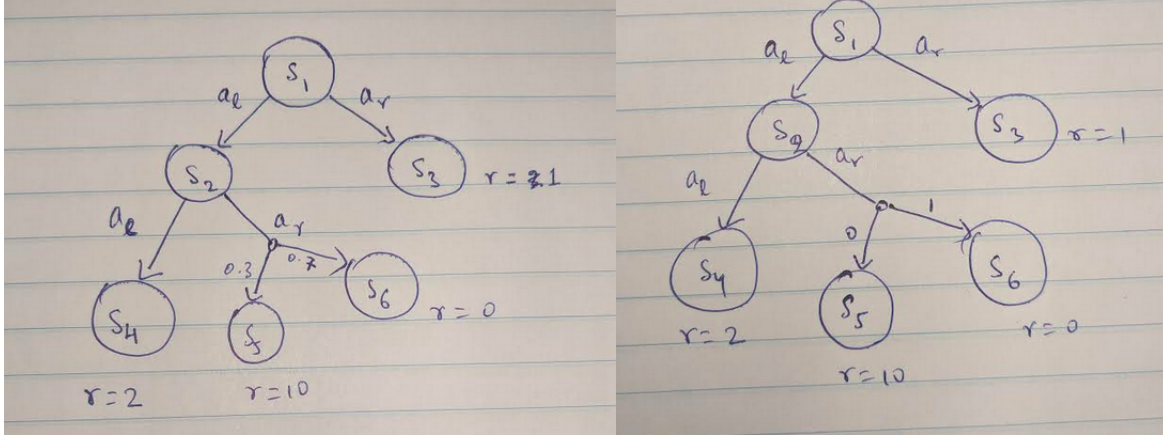 S1
al ar
S2 S3 r = 1
al ar
0.3 0.7
S4 S5 S6 r = 0
r = 2 r = 10
S1
al ar
S2 S3 r = 1
al ar
0 1
S4 S5 S6
r = 2 r = 0
r = 10